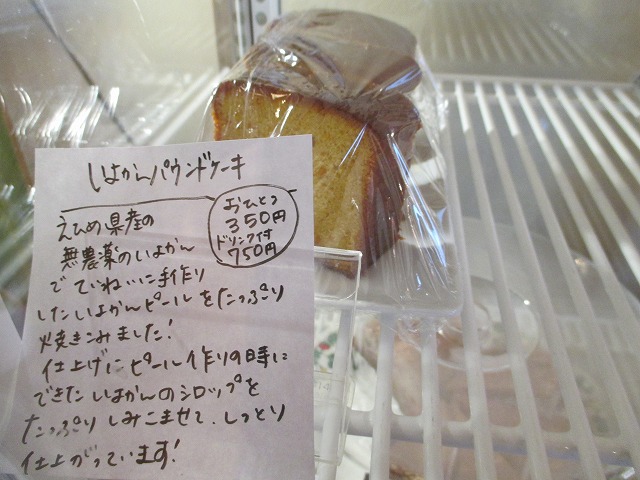 いよかんパウンドケーキ
おひとつ
350円
ドリンク付
750円
えひめ県産の
無農薬のいよかん
でていねいに手作り
したいよかんピールをたっぷり
焼きこみました!
仕上げにピール作りの時に
できたいよかんのシロップを
たっぷりしみこませて、しっとり
仕上がっています!